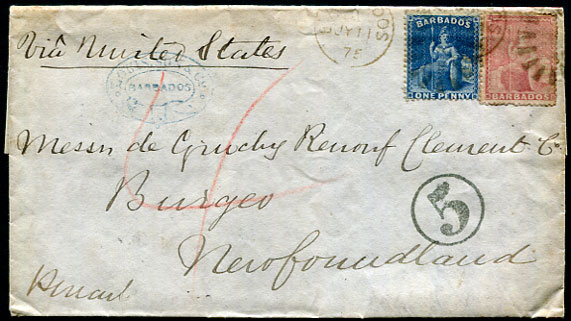 Via United States
JY 11
75
BARBADOS
ONE PENNY
BARBADOS
BARBADOS
Messrs de Gruchy Renouf Clement & Co
Burgeo
5
Newfoundland